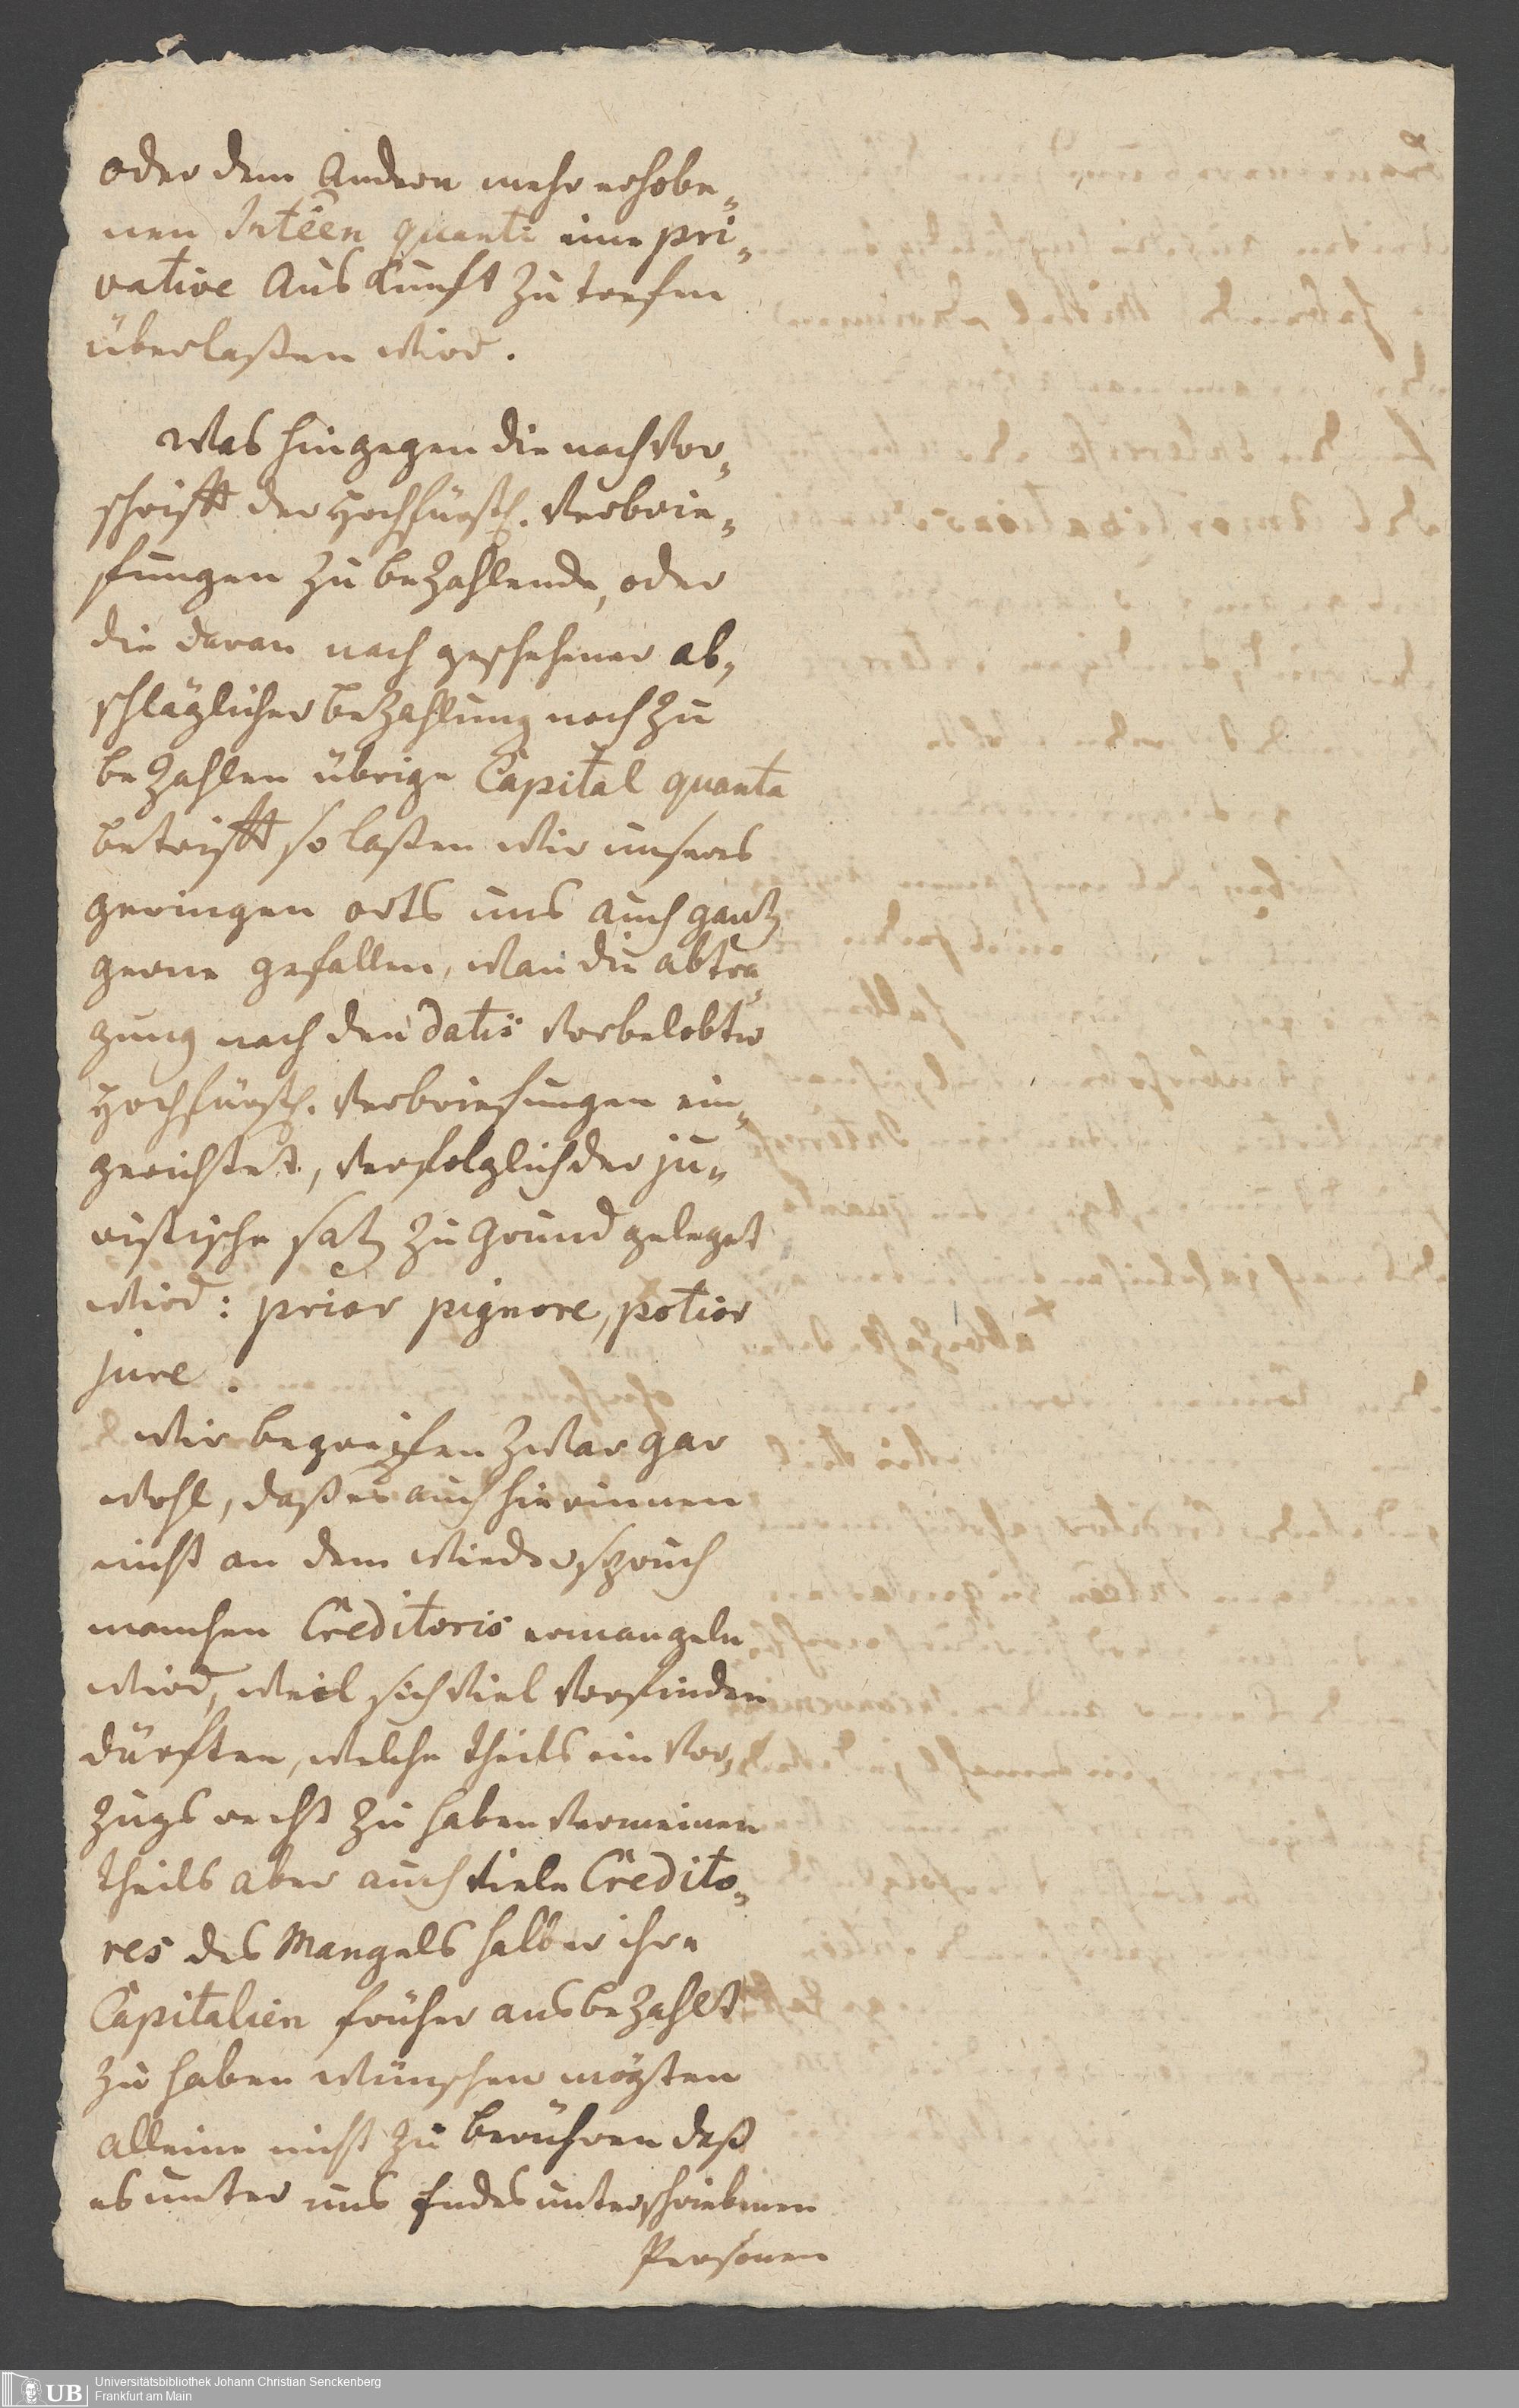 oder dem Andern mehr erhobe„
nen Inteên quanti eine pri„
vative Auskunft zu trefen
überlaßen wird.
Was hingegen die nach Vor„
schrifft der Hochfürstl. Verbrie„
fungen zu bezahlende, oder
die daran nach geschehener ab„
schläglicher bezahlung noch zu
bezahlen übrige Capital quanta
betrifft so laßen wir unsers
geringen orts uns auch gantz
gerne gefallen, wan die abtra„
gung nach den datis vorbelobter
Hochfürstl. Verbriefungen ein„
gerichtet, verfolglich der ju„
ristische satz zu Grund geleget
wird: prior pignore, potior
jure.
Wir begreifen zwar gar
wohl, daß es auch hierinnen
nicht an dem wiederspruch
manchen Creditoris ermangeln
wird, weil sich viel vorfinden
dürften, welche theils ein vor„
zugs recht zu haben vermeinen
theils aber auch viele Credito„
res des Mangels halber ihre
Capitalien früher ausbezahlt
zu haben wünschen mögten
alleine nicht zu berühren daß
es unter uns Endes unterschriebenen
Personen
Universitätsbibliothek Johann Christian Senckenberg
Frankfurt am Main
UB